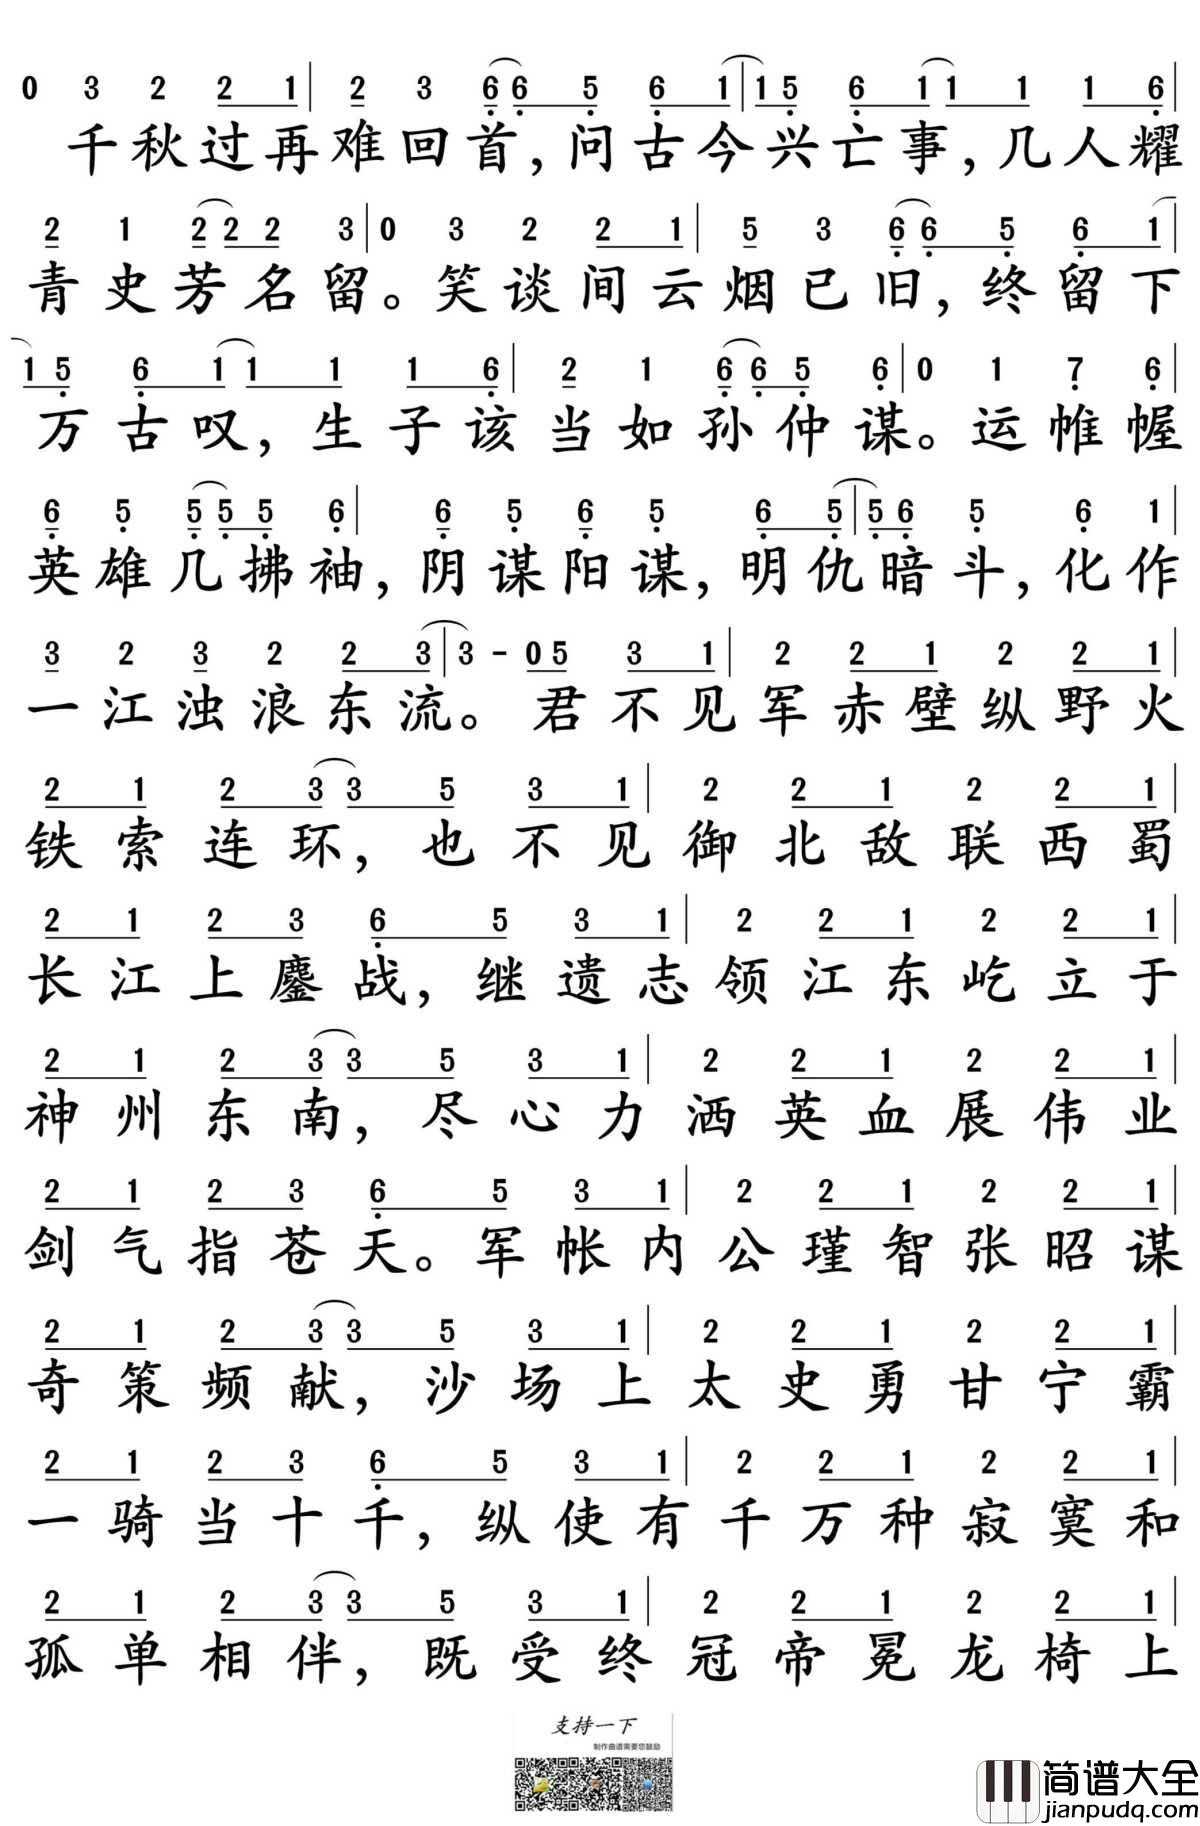 0 3 2 2 1 | 2 3 6 6 5 6 1 | 1 5 6 1 1 1 1 6 |
千秋过再难回首，问古今兴亡事，几人耀
2 1 2 2 2 3 | 0 3 2 2 1 | 5 3 6 6 5 6 1 |
青史芳名留。笑谈间云烟已旧，终留下
1 5 6 1 1 1 1 6 | 2 1 6 6 5 6 | 0 1 7 6 |
万古叹，生子该当如孙仲谋。运帷幄
6 5 5 5 5 6 | 6 5 6 5 6 5 | 5 6 5 6 1 |
英雄几拂袖，阴谋阳谋，明仇暗斗，化作
3 2 3 2 2 3 | 3 - 0 5 3 1 | 2 2 1 2 2 1 |
一江浊浪东流。君不见军赤壁纵野火
2 1 2 3 3 5 3 1 | 2 2 1 2 2 1 |
铁索连环，也不见御北敌联西蜀
2 1 2 3 6 5 3 1 | 2 2 1 2 2 1 |
长江上鏖战，继遗志领江东屹立于
2 1 2 3 3 5 3 1 | 2 2 1 2 2 1 |
神州东南，尽心力洒英血展伟业
2 1 2 3 6 5 3 1 | 2 2 1 2 2 1 |
剑气指苍天。军帐内公瑾智张昭谋
2 1 2 3 3 5 3 1 | 2 2 1 2 2 1 |
奇策频献，沙场上太史勇甘宁霸
2 1 2 3 6 5 3 1 | 2 2 1 2 2 1 |
一骑当十千，纵使有千万种寂寞和
2 1 2 3 3 5 3 1 | 2 2 1 2 2 1 |
孤单相伴，既受终冠帝冕龙椅上
支持一下
制作曲谱需要您鼓励
简谱大全
jianpudq.com